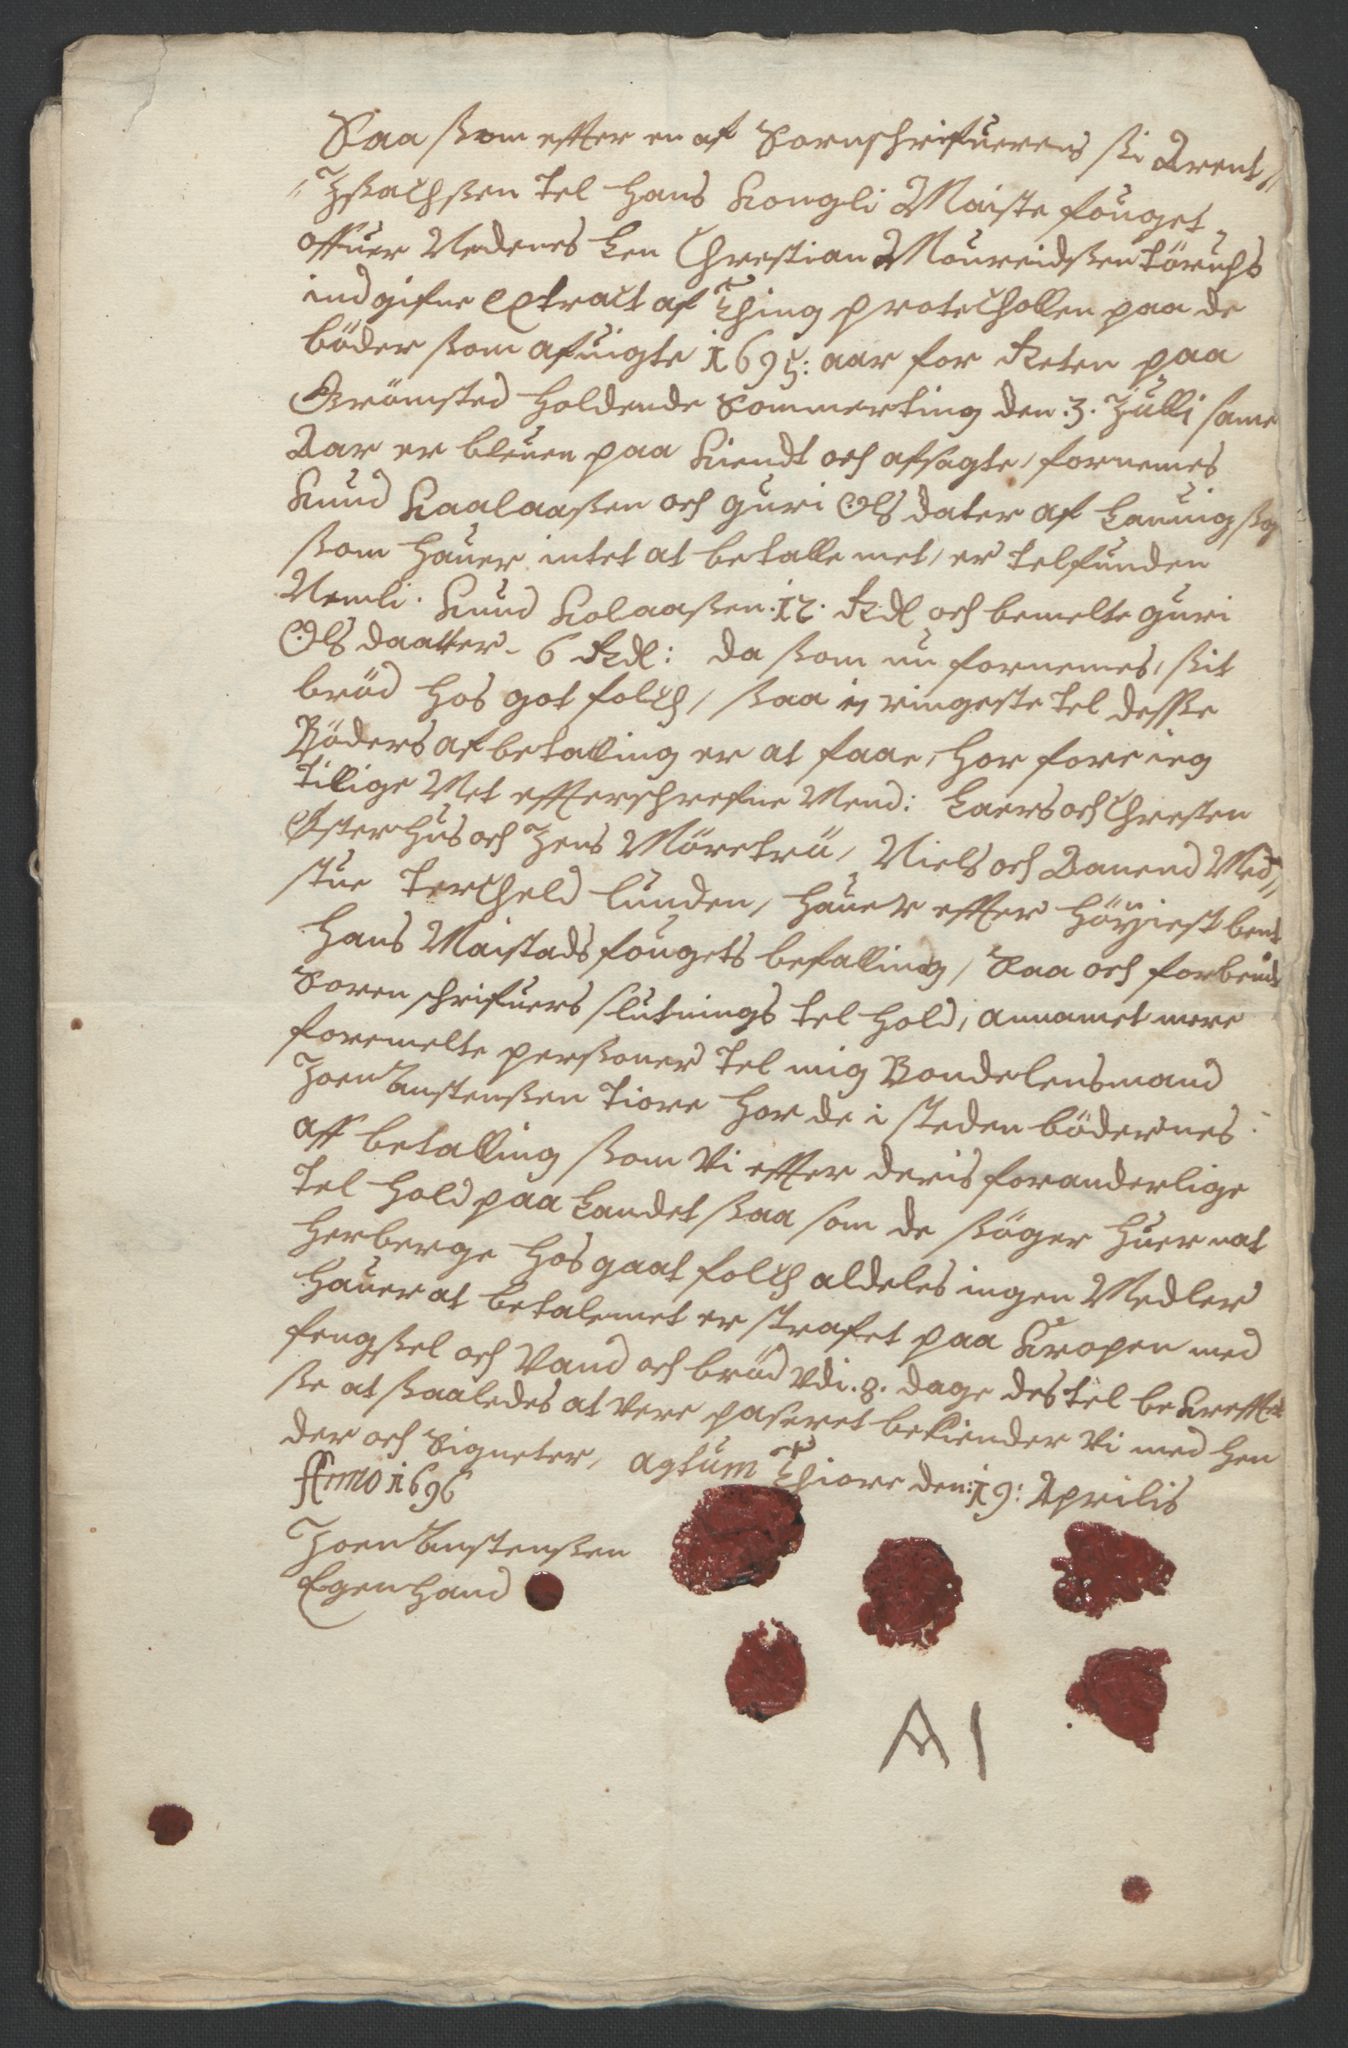 Saa ßom effter en af Sornschrifuerens ßi Arent //
// Jßachßen tel hans Kongli Maiste fouget
offuer Nedenes Len Chrestian Moureidßen
indgifne extract af Ting protechollen paa de
böder ßom afuigte 1695: aar for Reten paa
Grömsted holdende Sommerting den .3. Julli same
Aar er bleuen paa Kiendt och afsagte / fornemes
Knud Kaalaaßen och guri Ols dater af
ßom hauer intet at betalle met / er telfunden
Nemli. Knud Kolaaßen .12. Rdl och bemelte guri
Ols daatter - 6 Rdl: da ßom nu fornemes, ßit
bröd hos got folch / ßaa ey ringeste tel desse
Böders af betalling er at faae, hor fore ieg
tillige Met effterschrefne Mend: Laers och Chresten
Österhus och Jens Möretrü / Niels och Aanend Med //
stue Tercheld lunden / hauer effter höyiest bemt
hans Maistads fougets befalling / Saa och forbemt
Soren schrifuers slutnings tel hold, annamet mere
formelte perßoner tel mig Bondelensmand
Joen Anstenßen Tiore hor de i steden bödernes
aff betalling ßom Vi effter deris foranderlige
tel hold paa Landet ßaa som de ßöger huer nat
herberge hos gaat folch aldeles ingen Medler
hauer at betalemet er strafet paa Kropen med
fengßel och Vand och bröd Vdi .8. dage des tel bekrefftel
ße at ßaaledes at vere paseret bekiender Vi med hen
der och Signeter, agtum Tiore den: 19: Aprilis
Anno 1696
Joen Anstenßen
Egen hand
A I